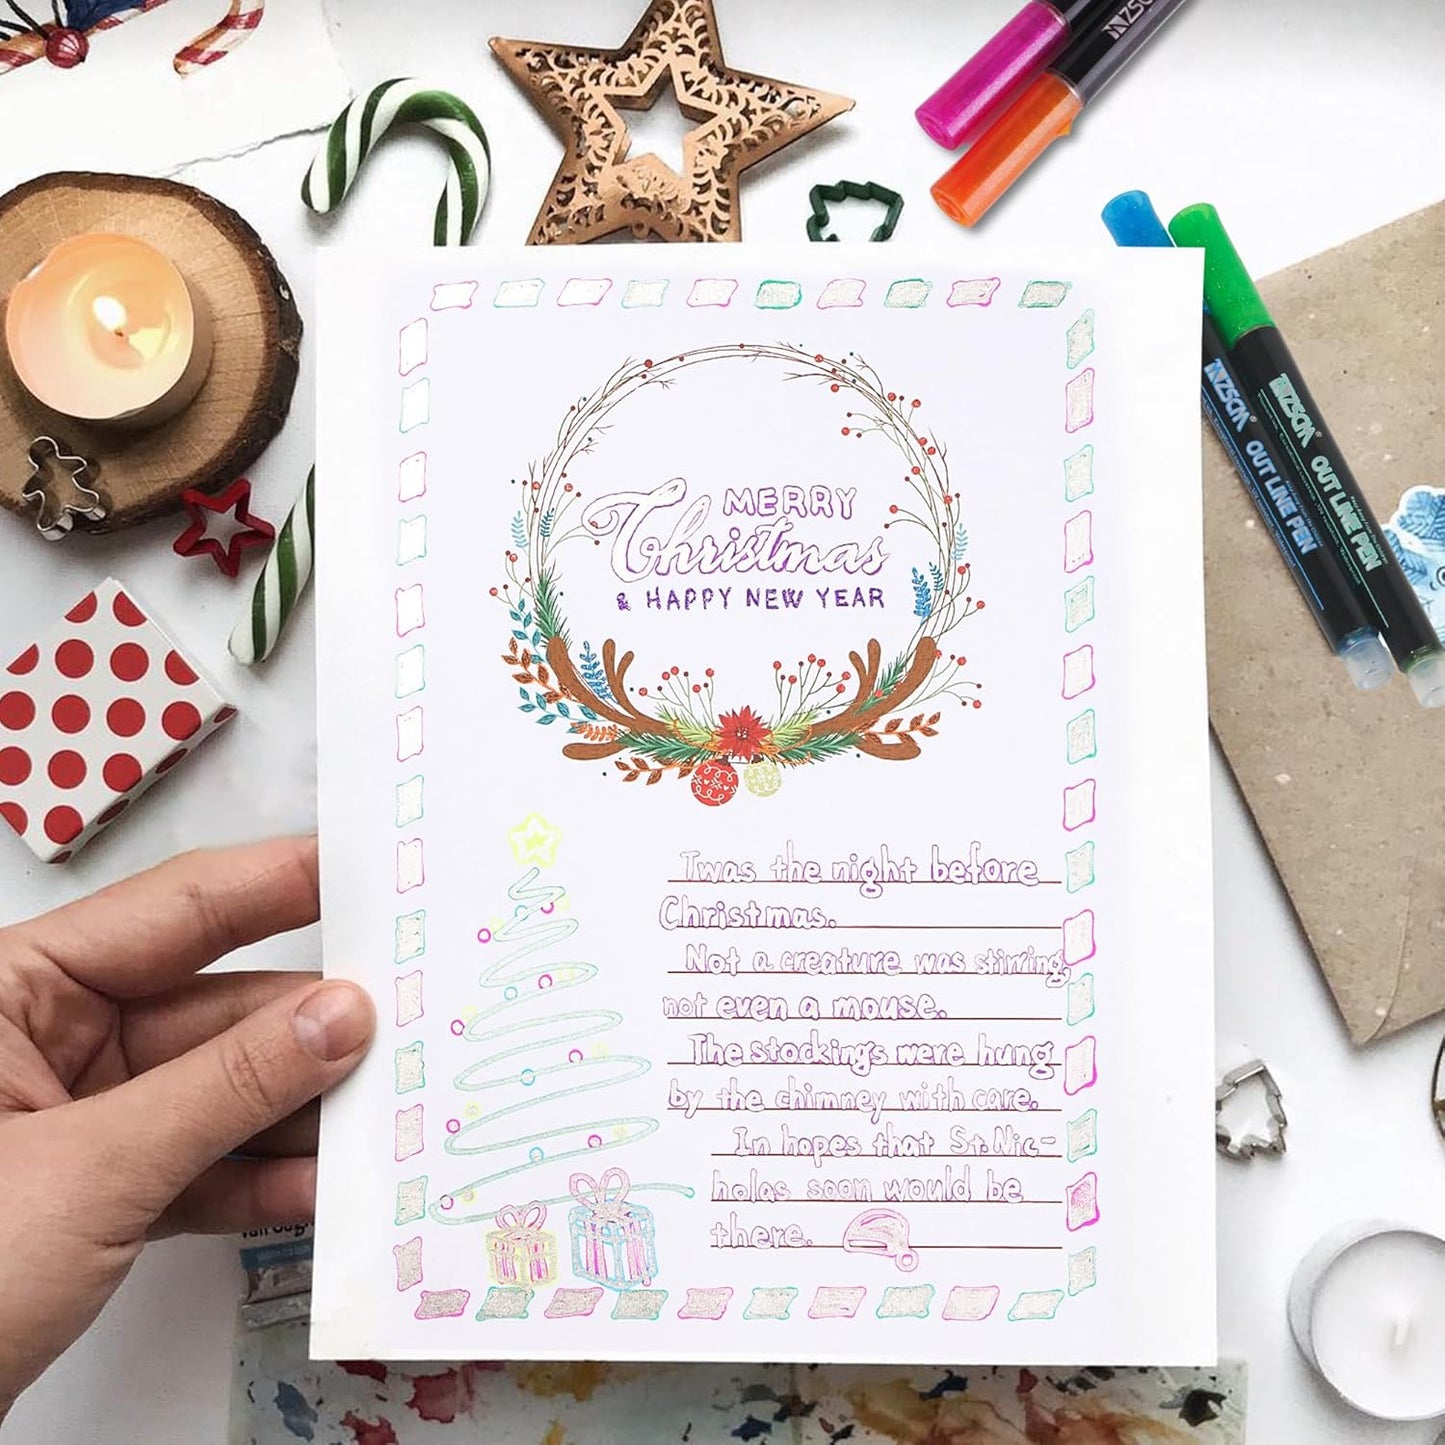 MERRY
Christmas
& HAPPY NEW YEAR
Twas the night before
Christmas.
Not a creature was stirring,
not even a mouse.
The stockings were hung
by the chimney with care.
In hopes that St. Nic-
holas soon would be
there.
ZSCM
ZSCM® OUT LINE PEN
ZSCM® OUT LINE PEN